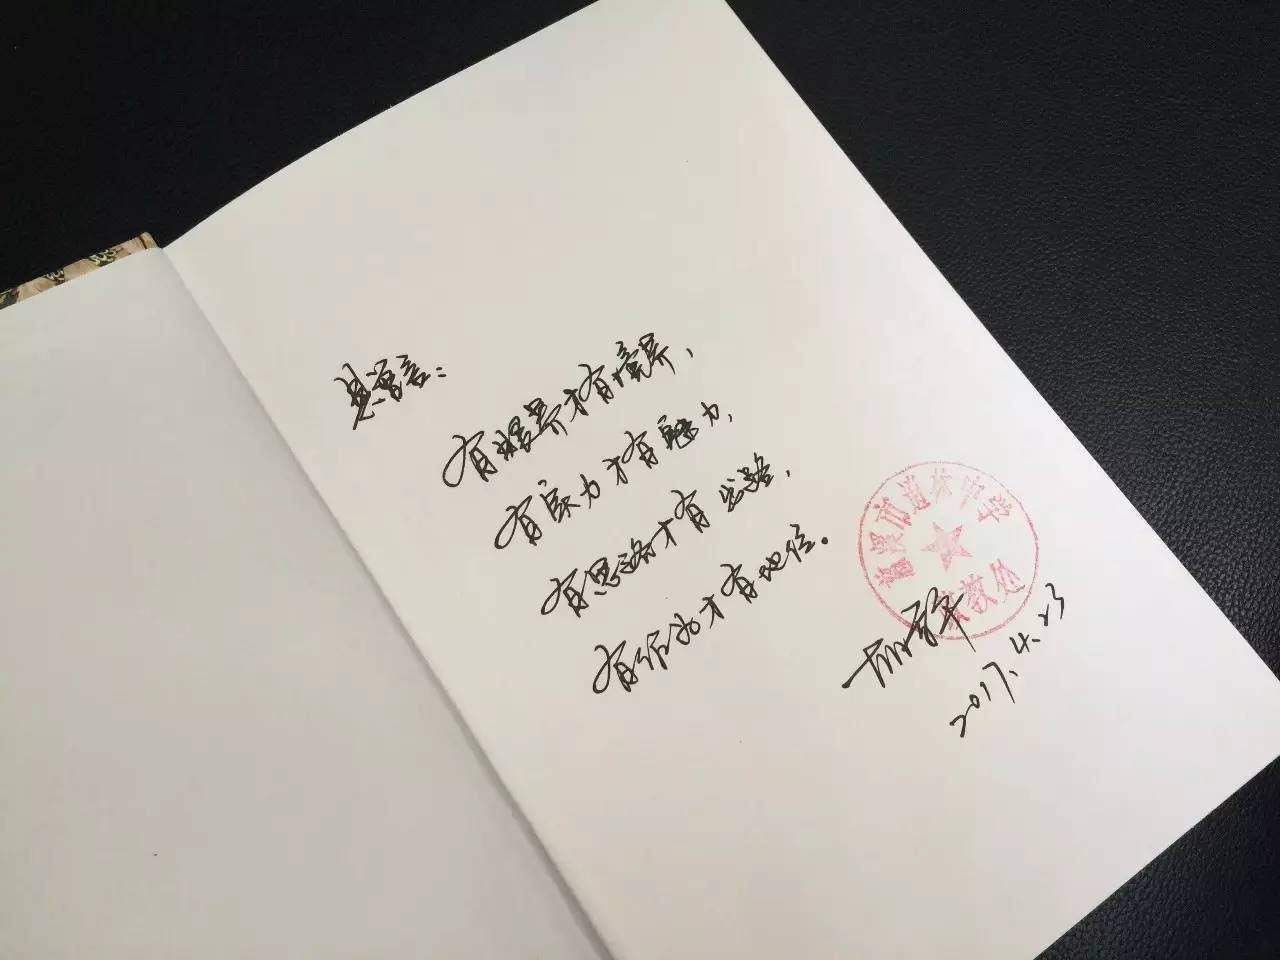 留言：
有眼界才有境界，
有实力才有魅力，
有思路才有出路，
有作为才有地位。
慈溪市道林中学
政教处
2017.4.23